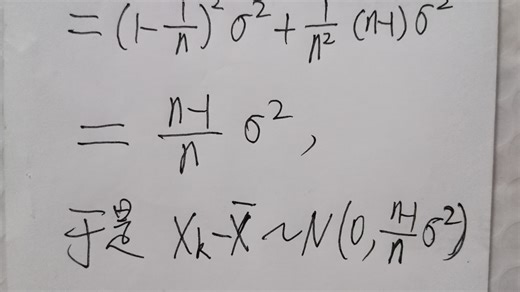 =(1-1/n)²σ²+1/n²(n-1)σ²
=n-1/n σ²,
于是 Xₖ-X̄~N(0,n-1/n σ²)